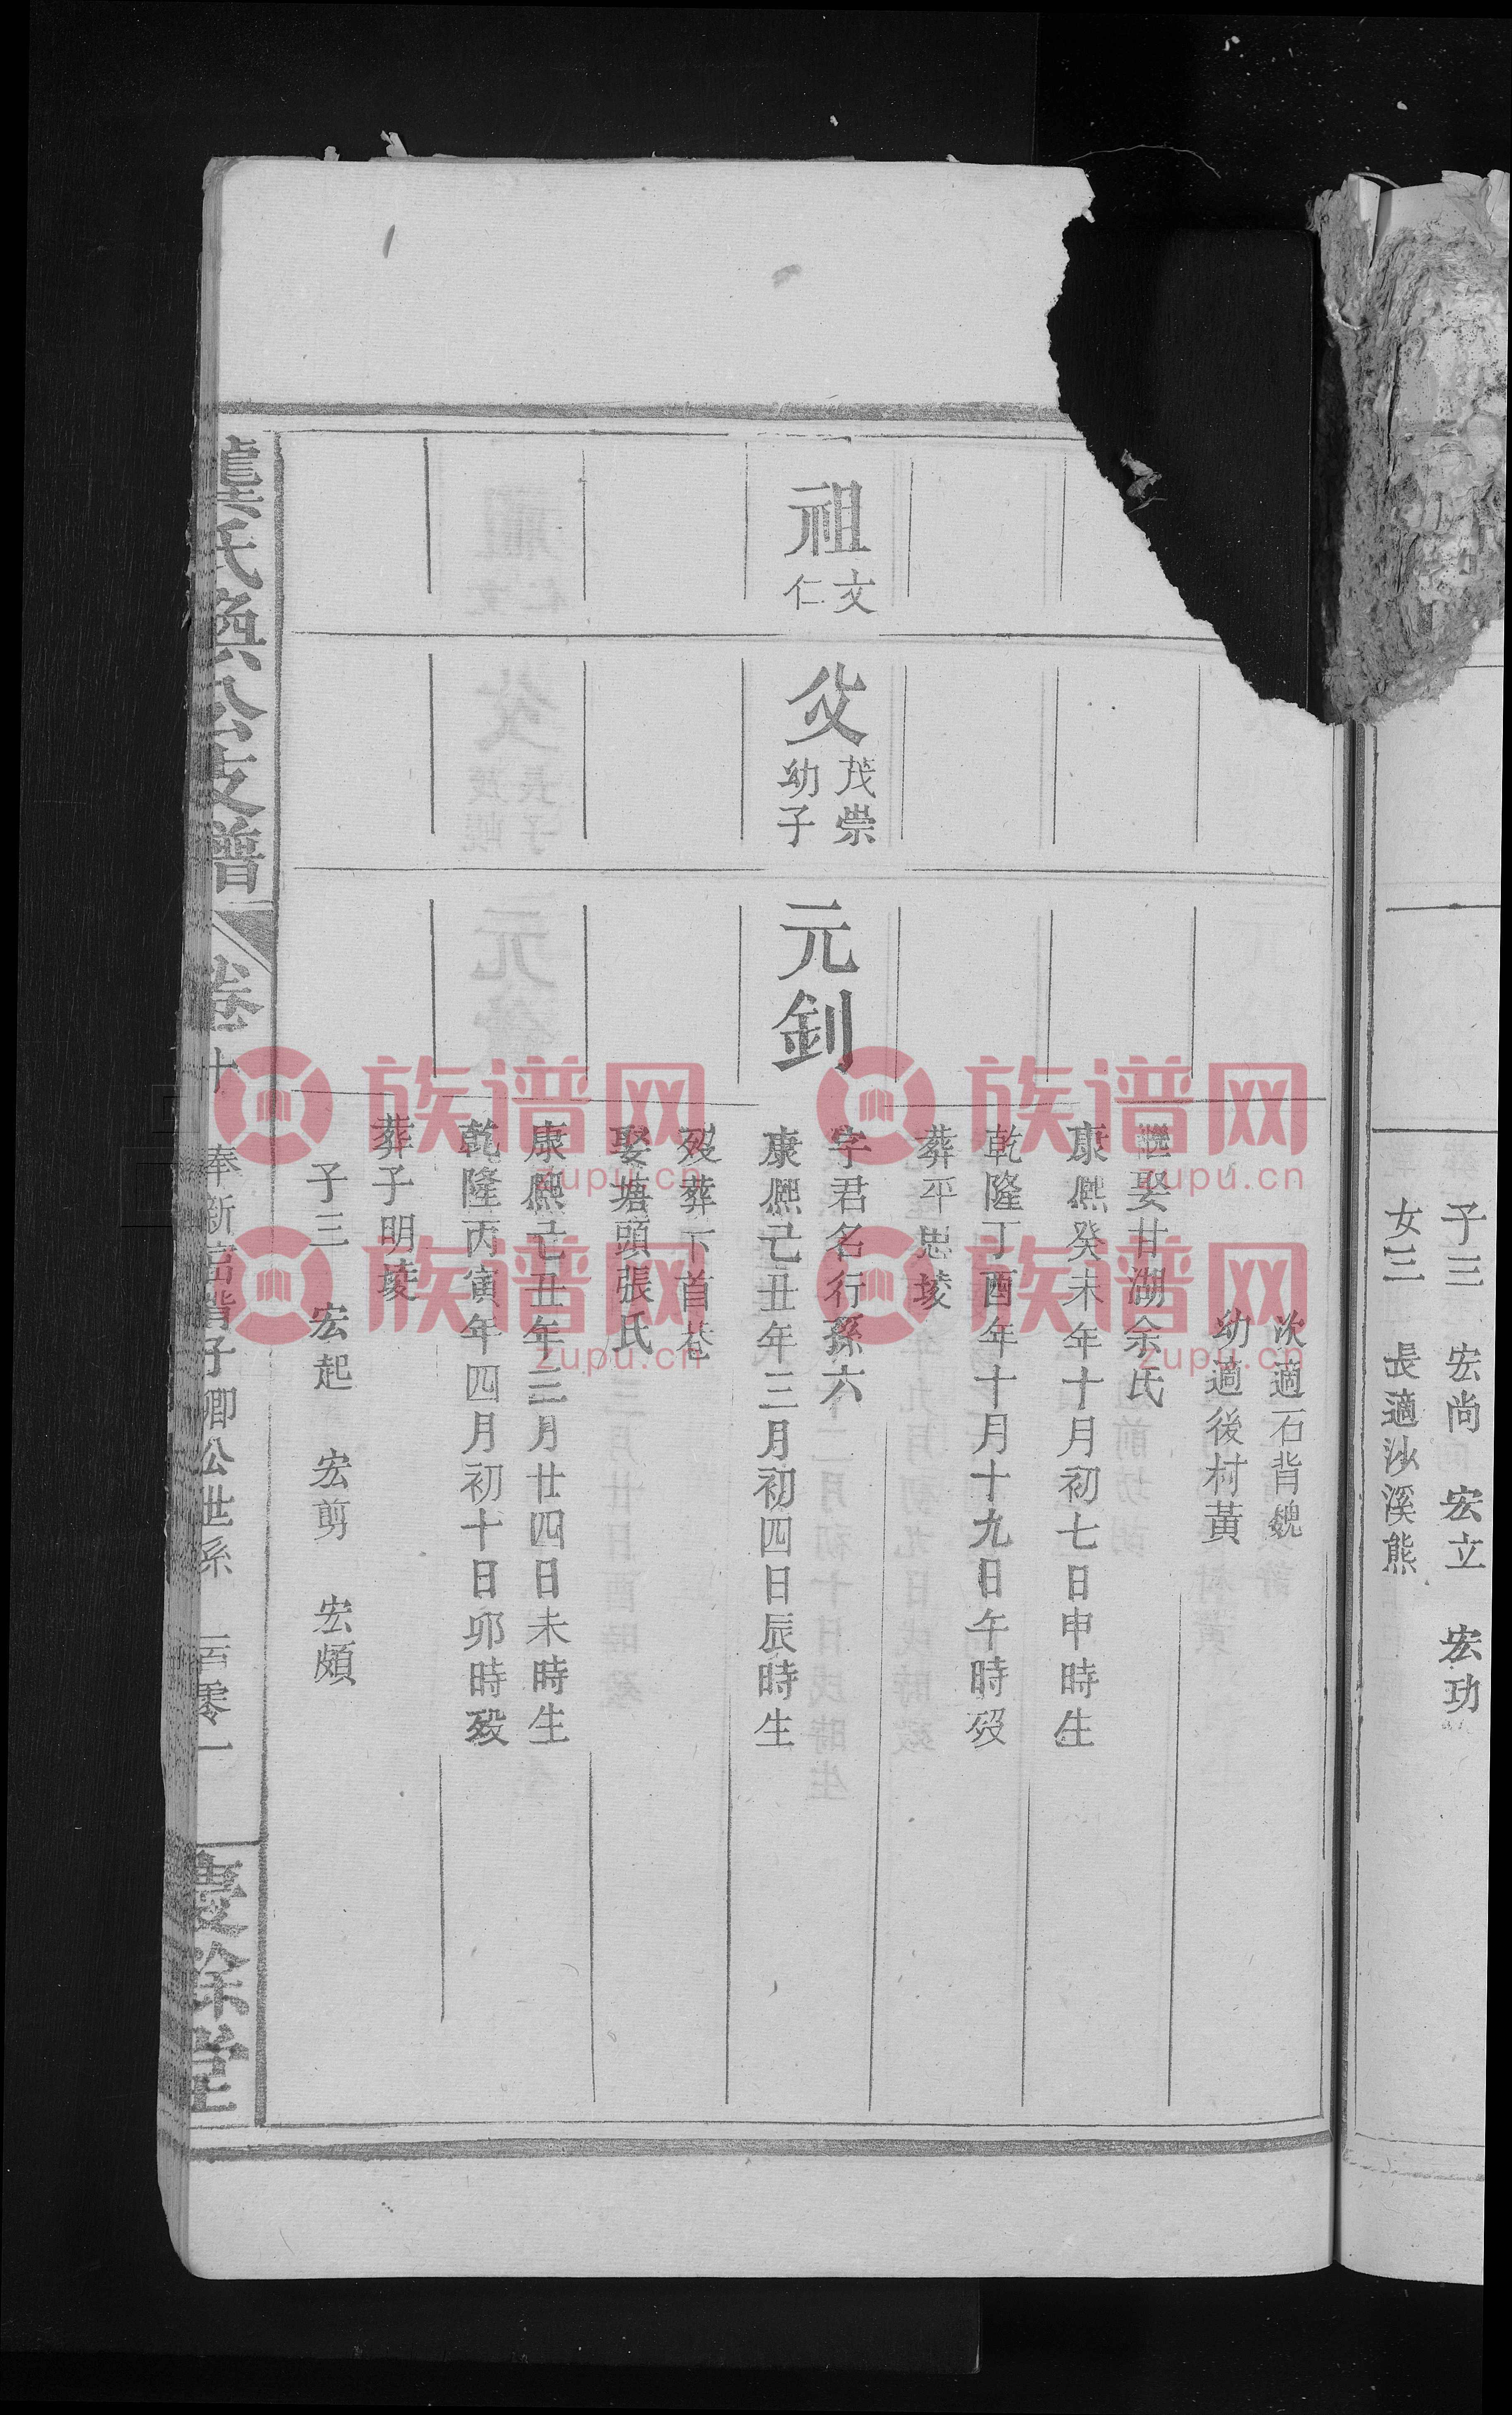 子三　宏尚　宏立　宏功
女三　長適沙溪熊
次適石背魏
幼適後村黃
繼娶甘湖余氏
康熙癸未年十月初七日申時生
乾隆丁酉年十月十九日午時歿
葬平忠埈
祖
文
仁
父
茂崇
幼子
元釗
字君名行孫六
康熙己丑年三月初四日辰時生
歿葬下首巷
娶塘頭張氏
康熙己丑年三月廿四日未時生
乾隆丙寅年四月初十日卯時歿
葬子明埈
子三　宏起　宏剪　宏頗
龔氏煥公支譜
卷十
奉新富
子卿公世系
一百零一
慶餘堂
族谱网
zupu.cn
族谱网
zupu.cn
族谱网
zupu.cn
族谱网
zupu.cn